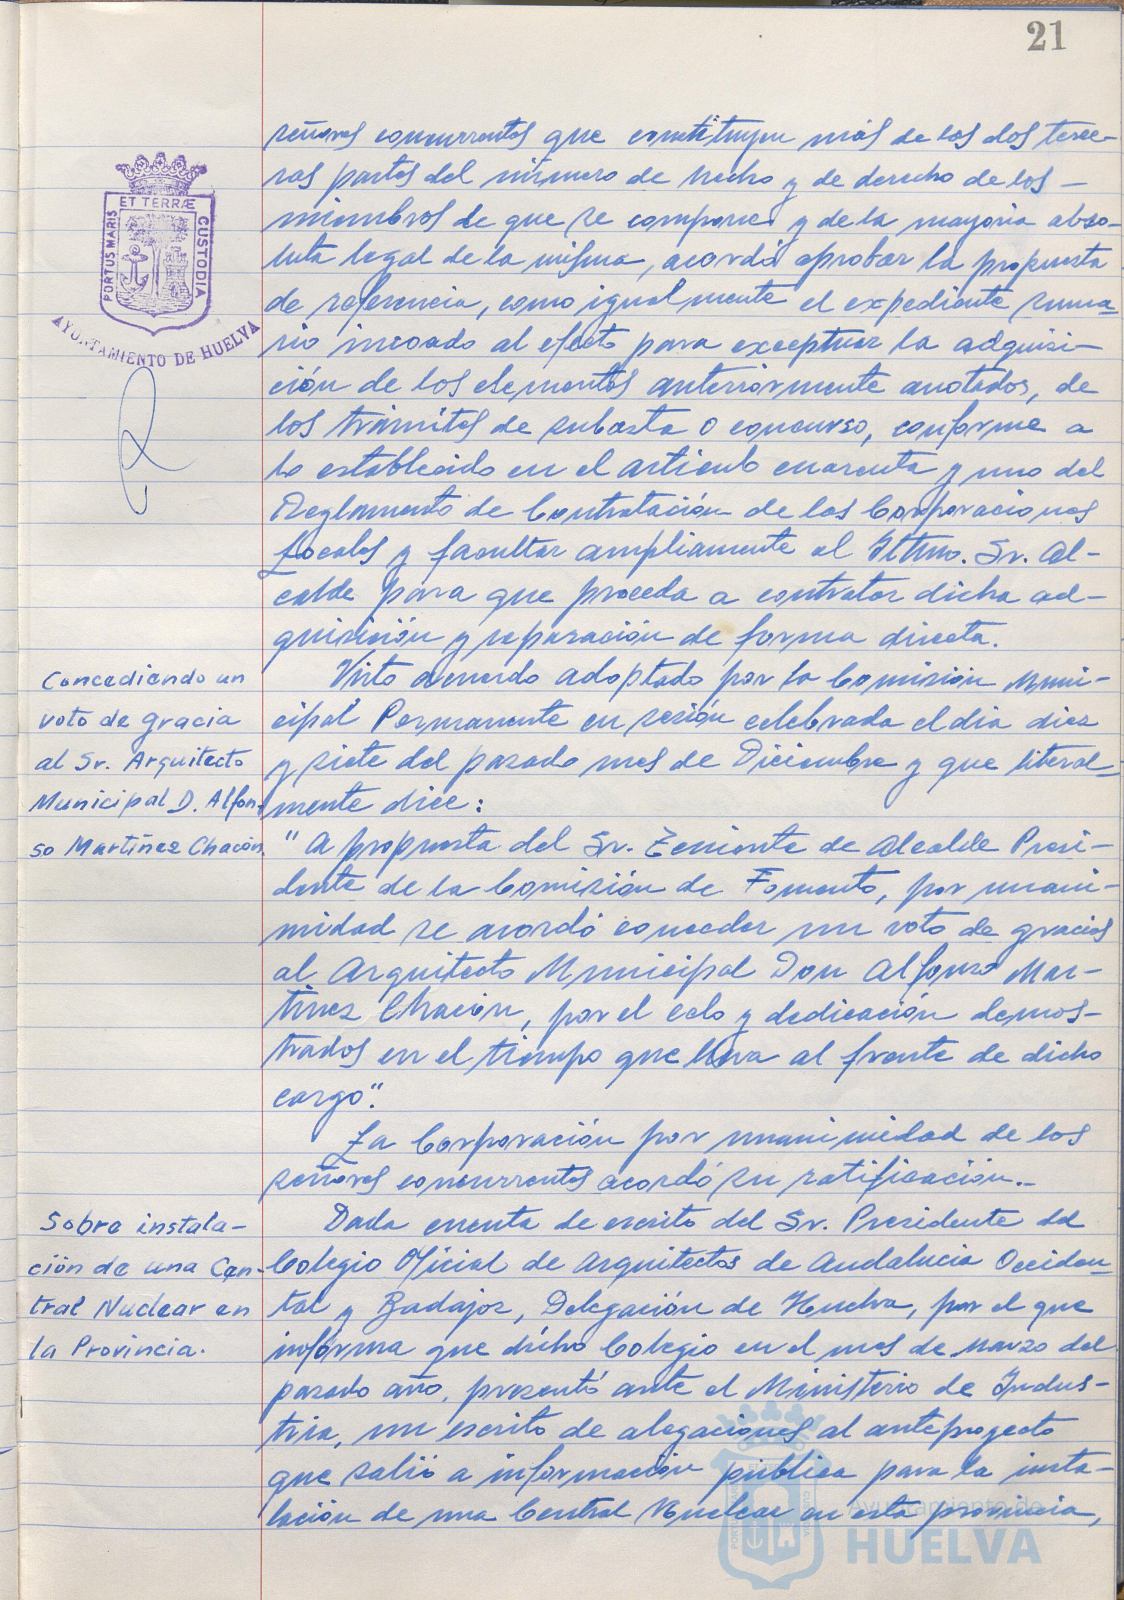 21
señores concurrentes que constituyen más de las dos terce-
ras partes del número de hecho y de derecho de los -
miembros de que se compone y de la mayoría abso-
luta legal de la misma, acordó aprobar la propuesta
de referencia, como igualmente el expediente suma-
rio incoado al efecto para exceptuar la adquisi-
ción de los elementos anteriormente anotados, de
los trámites de subasta o concurso, conforme a
lo establecido en el artículo cuarenta y uno del
Reglamento de Contratación de las Corporaciones
Locales y facultar ampliamente al Iltmo. Sr. Al-
calde para que proceda a contratar dicha ad-
quisición y reparación de forma directa.
Visto acuerdo adoptado por la Comisión Muni-
cipal Permanente en sesión celebrada el día diez
y siete del pasado mes de Diciembre y que literal-
mente dice:
" A propuesta del Sr. Teniente de Alcalde Presi-
dente de la Comisión de Fomento, por unani-
midad se acordó conceder un voto de gracias
al Arquitecto Municipal Don Alfonso Mar-
tínez Chacón, por el celo y dedicación demos-
trados en el tiempo que lleva al frente de dicho
cargo".
La Corporación por unanimidad de los
señores concurrentes acordó su ratificación.-
Dada cuenta de escrito del Sr. Presidente del
Colegio Oficial de Arquitectos de Andalucía Occiden-
tal y Badajoz, Delegación de Huelva, por el que
informa que dicho Colegio en el mes de marzo del
pasado año, presentó ante el Ministerio de Indus-
tria, un escrito de alegaciones al anteproyecto
que salió a información pública para la insta-
lación de una Central Nuclear en esta provincia,
ET TERRÆ
PORTUS MARIS
CUSTODIA
AYUNTAMIENTO DE HUELVA
Concediendo un
voto de gracia
al Sr. Arquitecto
Municipal D. Alfon-
so Martínez Chacón
Sobre instala-
ción de una Cen-
tral Nuclear en
la Provincia.
Ayuntamiento de
HUELVA